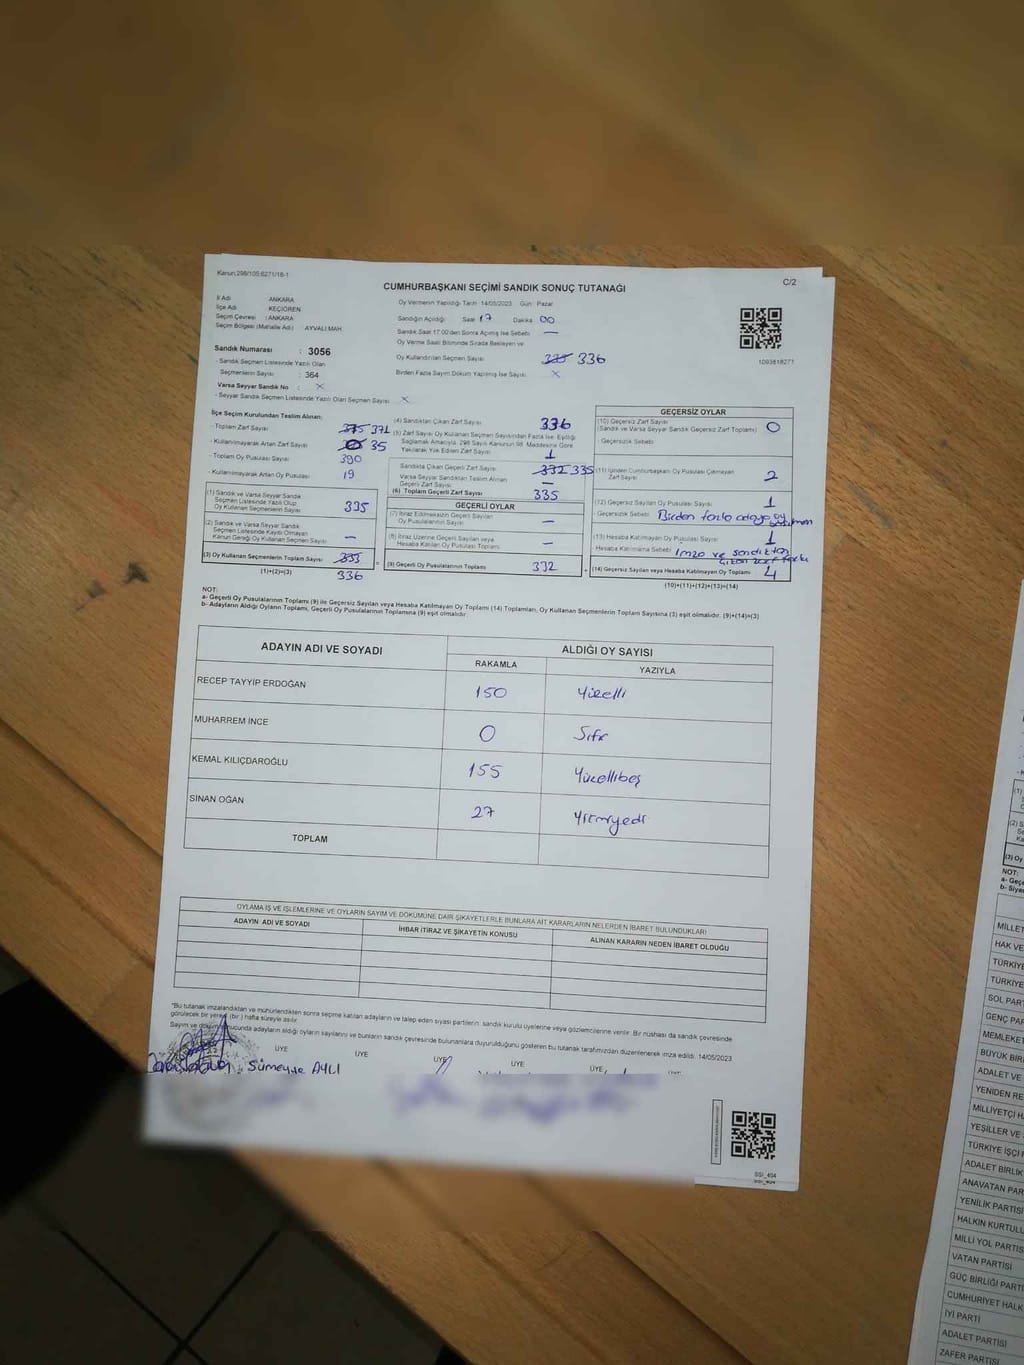 Kanun:298/105;6271/18-1
C/2
CUMHURBAŞKANI SEÇİMİ SANDIK SONUÇ TUTANAĞI
İl Adı ANKARA
İlçe Adı KEÇİÖREN
Seçim Çevresi : ANKARA
Seçim Bölgesi (Mahalle Adı) : AYVALI MAH.
Oy Vermenin Yapıldığı Tarih : 14/05/2023 Gün : Pazar
Sandığın Açıldığı Saat 17 Dakika 00
Sandık Saat 17:00'den Sonra Açılmış İse Sebebi : —
Oy Verme Saati Bitiminde Sırada Bekleyen ve
Oy Kullandırılan Seçmen Sayısı 335 336
Birden Fazla Sayım Döküm Yapılmış İse Sayısı : X
1093818271
Sandık Numarası : 3056
- Sandık Seçmen Listesinde Yazılı Olan
Seçmenlerin Sayısı : 364
Varsa Seyyar Sandık No : X
- Seyyar Sandık Seçmen Listesinde Yazılı Olan Seçmen Sayısı : X
İlçe Seçim Kurulundan Teslim Alınan:
- Toplam Zarf Sayısı 375 371
- Kullanılmayarak Artan Zarf Sayısı 35
- Toplam Oy Pusulası Sayısı 390
- Kullanılmayarak Artan Oy Pusulası 19
(1) Sandık ve Varsa Seyyar Sandık
Seçmen Listesinde Yazılı Olup
Oy Kullanan Seçmenlerin Sayısı 335
(2) Sandık ve Varsa Seyyar Sandık
Seçmen Listesinde Kayıtlı Olmayan
Kanun Gereği Oy Kullanan Seçmen Sayısı —
(3) Oy Kullanan Seçmenlerin Toplam Sayısı 335
(1)+(2)=(3) 336
(4) Sandıktan Çıkan Zarf Sayısı 336
(5) Zarf Sayısı Oy Kullanan Seçmen Sayısından Fazla İse, Eşitliği
Sağlamak Amacıyla, 298 Sayılı Kanunun 98. Maddesine Göre
Yakılarak Yok Edilen Zarf Sayısı 1
Sandıkta Çıkan Geçerli Zarf Sayısı 332 335
Varsa Seyyar Sandıktan Teslim Alınan
Geçerli Zarf Sayısı —
(6) Toplam Geçerli Zarf Sayısı 335
GEÇERLİ OYLAR
(7) İtiraz Edilmeksizin Geçerli Sayılan
Oy Pusulalarının Sayısı —
(8) İtiraz Üzerine Geçerli Sayılan veya
Hesaba Katılan Oy Pusulası Toplamı —
(9) Geçerli Oy Pusulalarının Toplamı 332
GEÇERSİZ OYLAR
(10) Geçersiz Zarf Sayısı
(Sandık ve Varsa Seyyar Sandık Geçersiz Zarf Toplamı) 0
- Geçersizlik Sebebi :
(11) İçinden Cumhurbaşkanı Oy Pusulası Çıkmayan
Zarf Sayısı 2
(12) Geçersiz Sayılan Oy Pusulası Sayısı 1
- Geçersizlik Sebebi : Birden fazla adaya oy
(13) Hesaba Katılmayan Oy Pusulası Sayısı 1
Hesaba Katılmama Sebebi : İmza ve sandıktan
çıkan zarf farkı
(14) Geçersiz Sayılan veya Hesaba Katılmayan Oy Toplamı 4
(10)+(11)+(12)+(13)=(14)
NOT:
a- Geçerli Oy Pusulalarının Toplamı (9) ile Geçersiz Sayılan veya Hesaba Katılmayan Oy Toplamı (14) Toplamları, Oy Kullanan Seçmenlerin Toplam Sayısına (3) eşit olmalıdır. (9)+(14)=(3)
b- Adayların Aldığı Oyların Toplamı, Geçerli Oy Pusulalarının Toplamına (9) eşit olmalıdır.
ADAYIN ADI VE SOYADI ALDIĞI OY SAYISI
RAKAMLA YAZIYLA
RECEP TAYYİP ERDOĞAN 150 Yüzelli
MUHARREM İNCE 0 Sıfır
KEMAL KILIÇDAROĞLU 155 Yüzellibeş
SİNAN OĞAN 27 Yirmiyedi
TOPLAM
OYLAMA İŞ VE İŞLEMLERİNE VE OYLARIN SAYIM VE DÖKÜMÜNE DAİR ŞİKAYETLERLE BUNLARA AİT KARARLARIN NELERDEN İBARET BULUNDUKLARI
ADAYIN ADI VE SOYADI İHBAR İTİRAZ VE ŞİKAYETİN KONUSU ALINAN KARARIN NEDEN İBARET OLDUĞU
*Bu tutanak imzalandıktan ve mühürlendikten sonra seçime katılan adayların ve talep eden siyasi partilerin sandık kurulu üyelerine veya gözlemcilerine verilir. Bir nüshası da sandık çevresinde
görülecek bir yere (bir) hafta süreyle asılır.
Sayım ve döküm sonucunda adayların aldığı oyların sayılarını ve bunların sandık çevresinde bulunanlara duyurulduğunu gösteren bu tutanak tarafımızdan düzenlenerek imza edildi. 14/05/2023
ÜYE ÜYE ÜYE ÜYE ÜYE
Sümeyye AYLI
SSI_404
SSI_404
NOT:
MİLLET
HAK VE
TÜRKİYE
TÜRKİYE
SOL PAR
GENÇ PA
MEMLEKET
BÜYÜK BİR
ADALET VE
YENİDEN RE
MİLLİYETÇİ H
YEŞİLLER VE
TÜRKİYE İŞÇİ
ADALET BİRLİK
ANAVATAN PAR
YENİLİK PARTİSİ
HALKIN KURTULU
MİLLİ YOL PARTİS
VATAN PARTİSİ
GÜÇ BİRLİĞİ PARTİ
CUMHURİYET HALK
İYİ PARTİ
ADALET PARTİSİ
ZAFER PARTİSİ